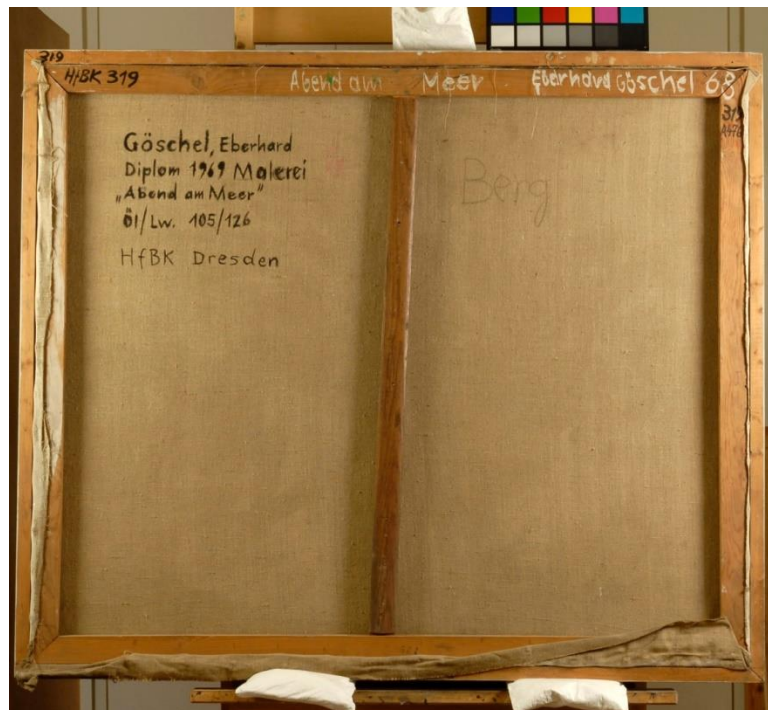 319
HfBK 319
Abend am Meer Eberhard Göschel 68
319
Göschel, Eberhard
Diplom 1969 Malerei
„Abend am Meer"
Öl/Lw. 105/126
HfBK Dresden
Berg